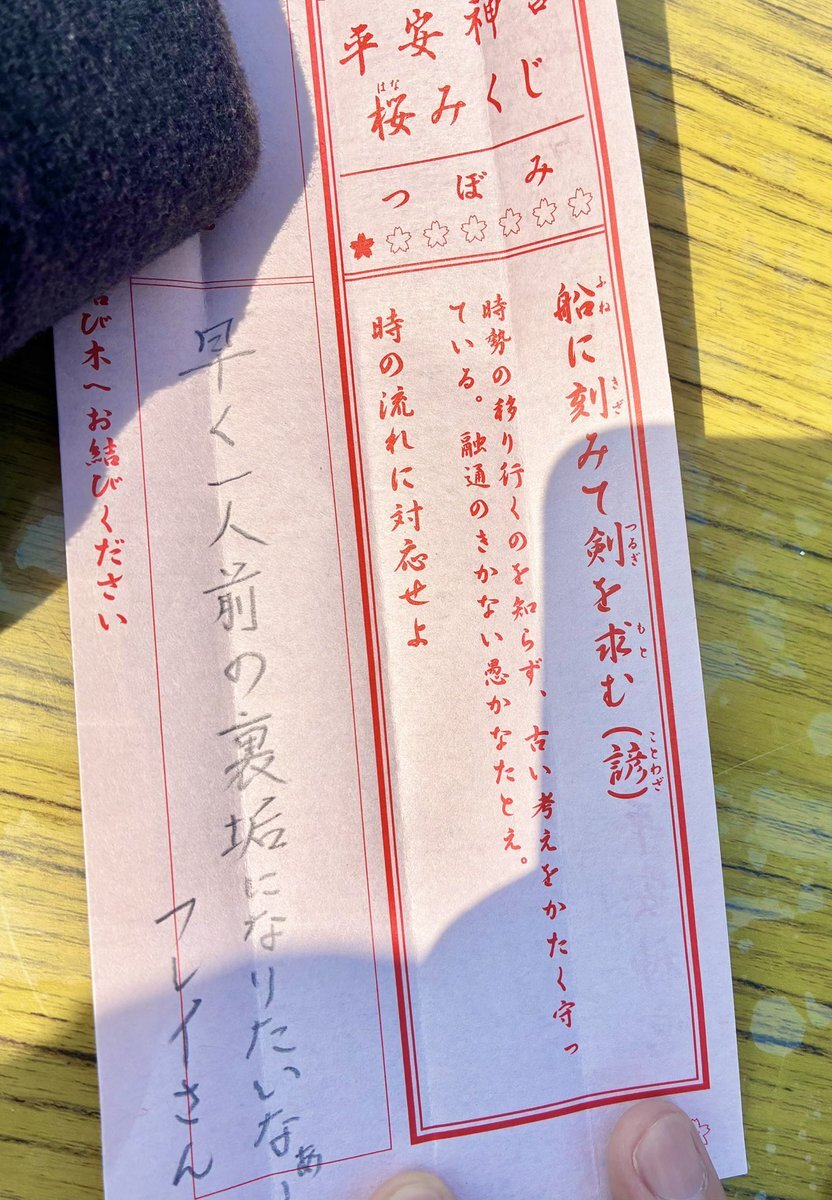 平安神宮
桜みくじ
はな
つぼみ
船に刻みて剣を求む(諺)
ふね
きざ
つるぎ
もと
ことわざ
時勢の移り行くのを知らず、古い考えをかたく守っ
ている。融通のきかない愚かなたとえ。
時の流れに対応せよ
早く一人前の裏垢になりたいなぁー
フレイさん
結び木へお結びください